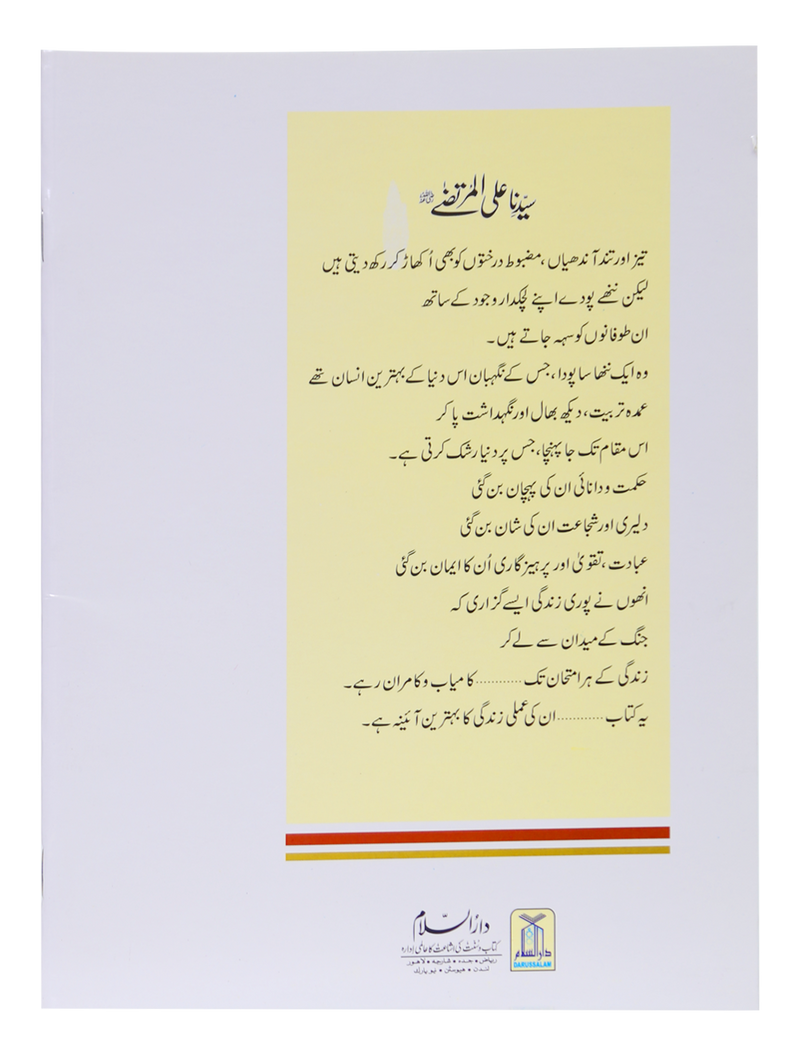 سیّدنا علی المُرتضےٰ رضی اللہ عنہ
تیز اور تند آندھیاں، مضبوط درختوں کو بھی اُکھاڑ کر رکھ دیتی ہیں
لیکن ننھے پودے اپنے لچکدار وجود کے ساتھ
ان طوفانوں کو سہہ جاتے ہیں۔
وہ ایک ننھا سا پودا، جس کے نگہبان اس دنیا کے بہترین انسان تھے
عمدہ تربیت، دیکھ بھال اور نگہداشت پا کر
اس مقام تک جا پہنچا، جس پر دنیا رشک کرتی ہے۔
حکمت و دانائی ان کی پہچان بن گئی
دلیری اور شجاعت ان کی شان بن گئی
عبادت، تقویٰ اور پرہیزگاری اُن کا ایمان بن گئی
انھوں نے پوری زندگی ایسے گزاری کہ
جنگ کے میدان سے لے کر
زندگی کے ہر امتحان تک ............ کامیاب و کامران رہے۔
یہ کتاب ............ ان کی عملی زندگی کا بہترین آئینہ ہے۔
دارُالسّلام
کتاب و سنت کی اشاعت کا عالمی ادارہ
ریاض • جدہ • شارجہ • لاہور
لندن • ہیوسٹن • نیویارک
دارالسلام
DARUSSALAM